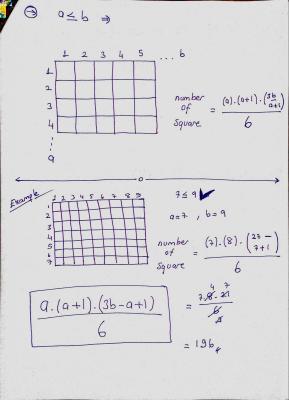 → a ≤ b ⇒
1 2 3 4 5 ... b
1
2
3
4
a
number of Square = (a).(a+1).(3b-a+1) / 6
Example
1 2 3 4 5 6 7 8 9
1
2
3
4
5
6
7
7 ≤ 9 ✓
a=7 , b=9
number of Square = (7).(8).(27-7+1) / 6
a.(a+1).(3b-a+1) / 6
= 7.8.21 / 6
4 7
= 196